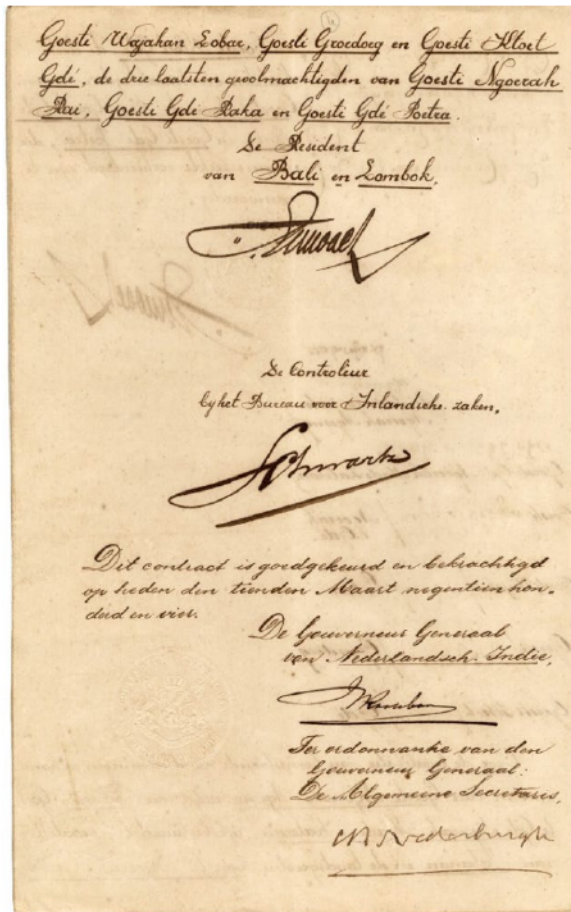 Goesti Wajahan Lobar, Goesti Groedoeg en Goesti Ktoet
Gdé, de drie laatsten gevolmachtigden van Goesti Ngoerah
Rai, Goesti Gdé Raka en Goesti Gdé Poetra.
De Resident
van Bali en Lombok,
De Controleur
by het Bureau voor Inlandsche zaken,
Schwartz
Dit contract is goedgekeurd en bekrachtigd
op heden den tienden Maart negentien hon-
derd en vier.
De Gouverneur Generaal
van Nederlandsch-Indie,
Ter ordonnantie van den
Gouverneur Generaal:
De Algemeene Secretaris,
Nederburgh